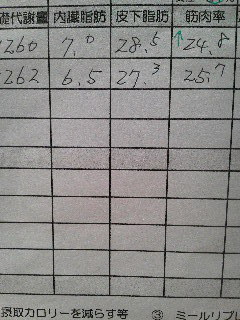 礎代謝量 内臓脂肪 皮下脂肪 筋肉率
1260 7.0 28.5 ↑24.8
1262 6.5 27.3 25.7
摂取カロリーを減らす等 ③ ミールリプレ